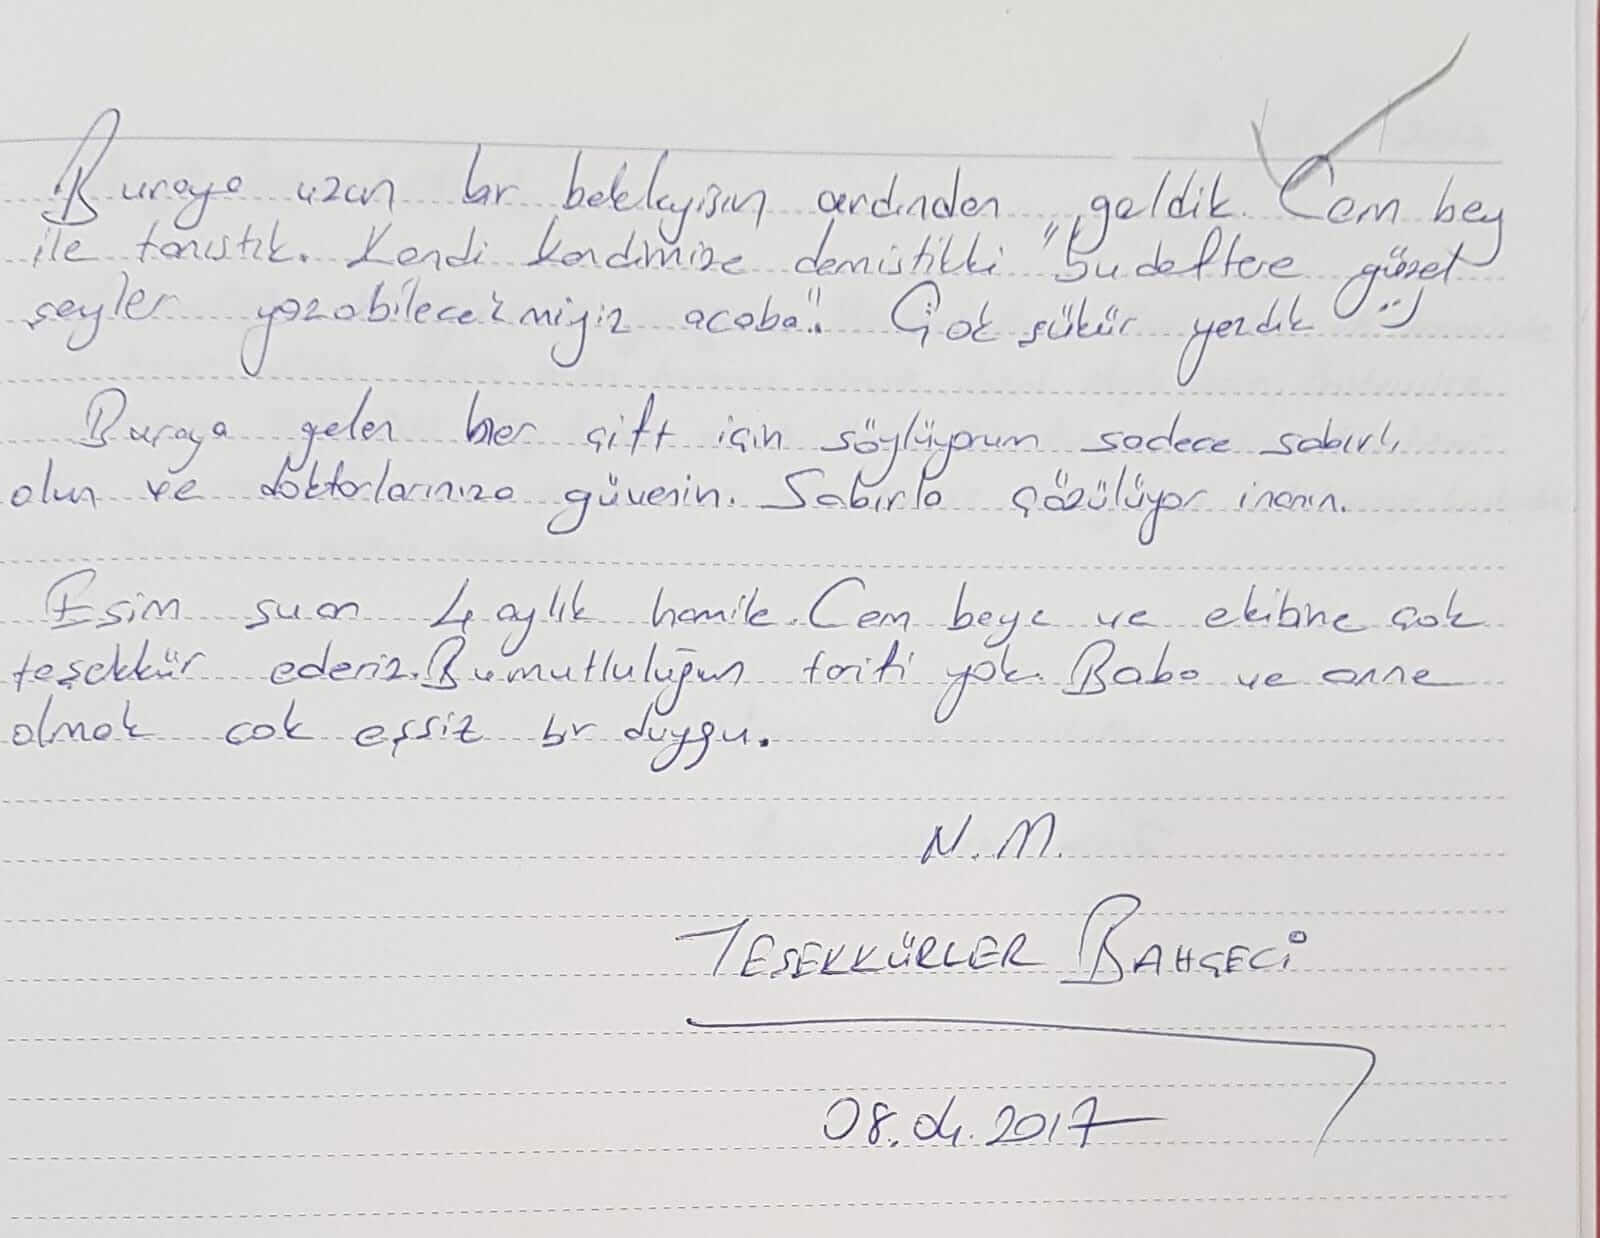 Buraya uzun bir bekleyişin ardından geldik. Cem bey
ile tanıştık. Kendi kendimize demiştikki "bu deftere güzel
şeyler yazabilecekmiyiz acaba". Çok şükür yazdık :)
Buraya gelen her çift için söylüyorum sadece sabırlı
olun ve doktorlarınıza güvenin. Sabırla çözülüyor inanın.
Eşim şuan 4 aylık hamile. Cem beye ve ekibine çok
teşekkür ederiz. Bu mutluluğun tarifi yok. Baba ve anne
olmak çok eşsiz bir duygu.
N.M.
TEŞEKKÜRLER BAHÇECİ
08.04.2017